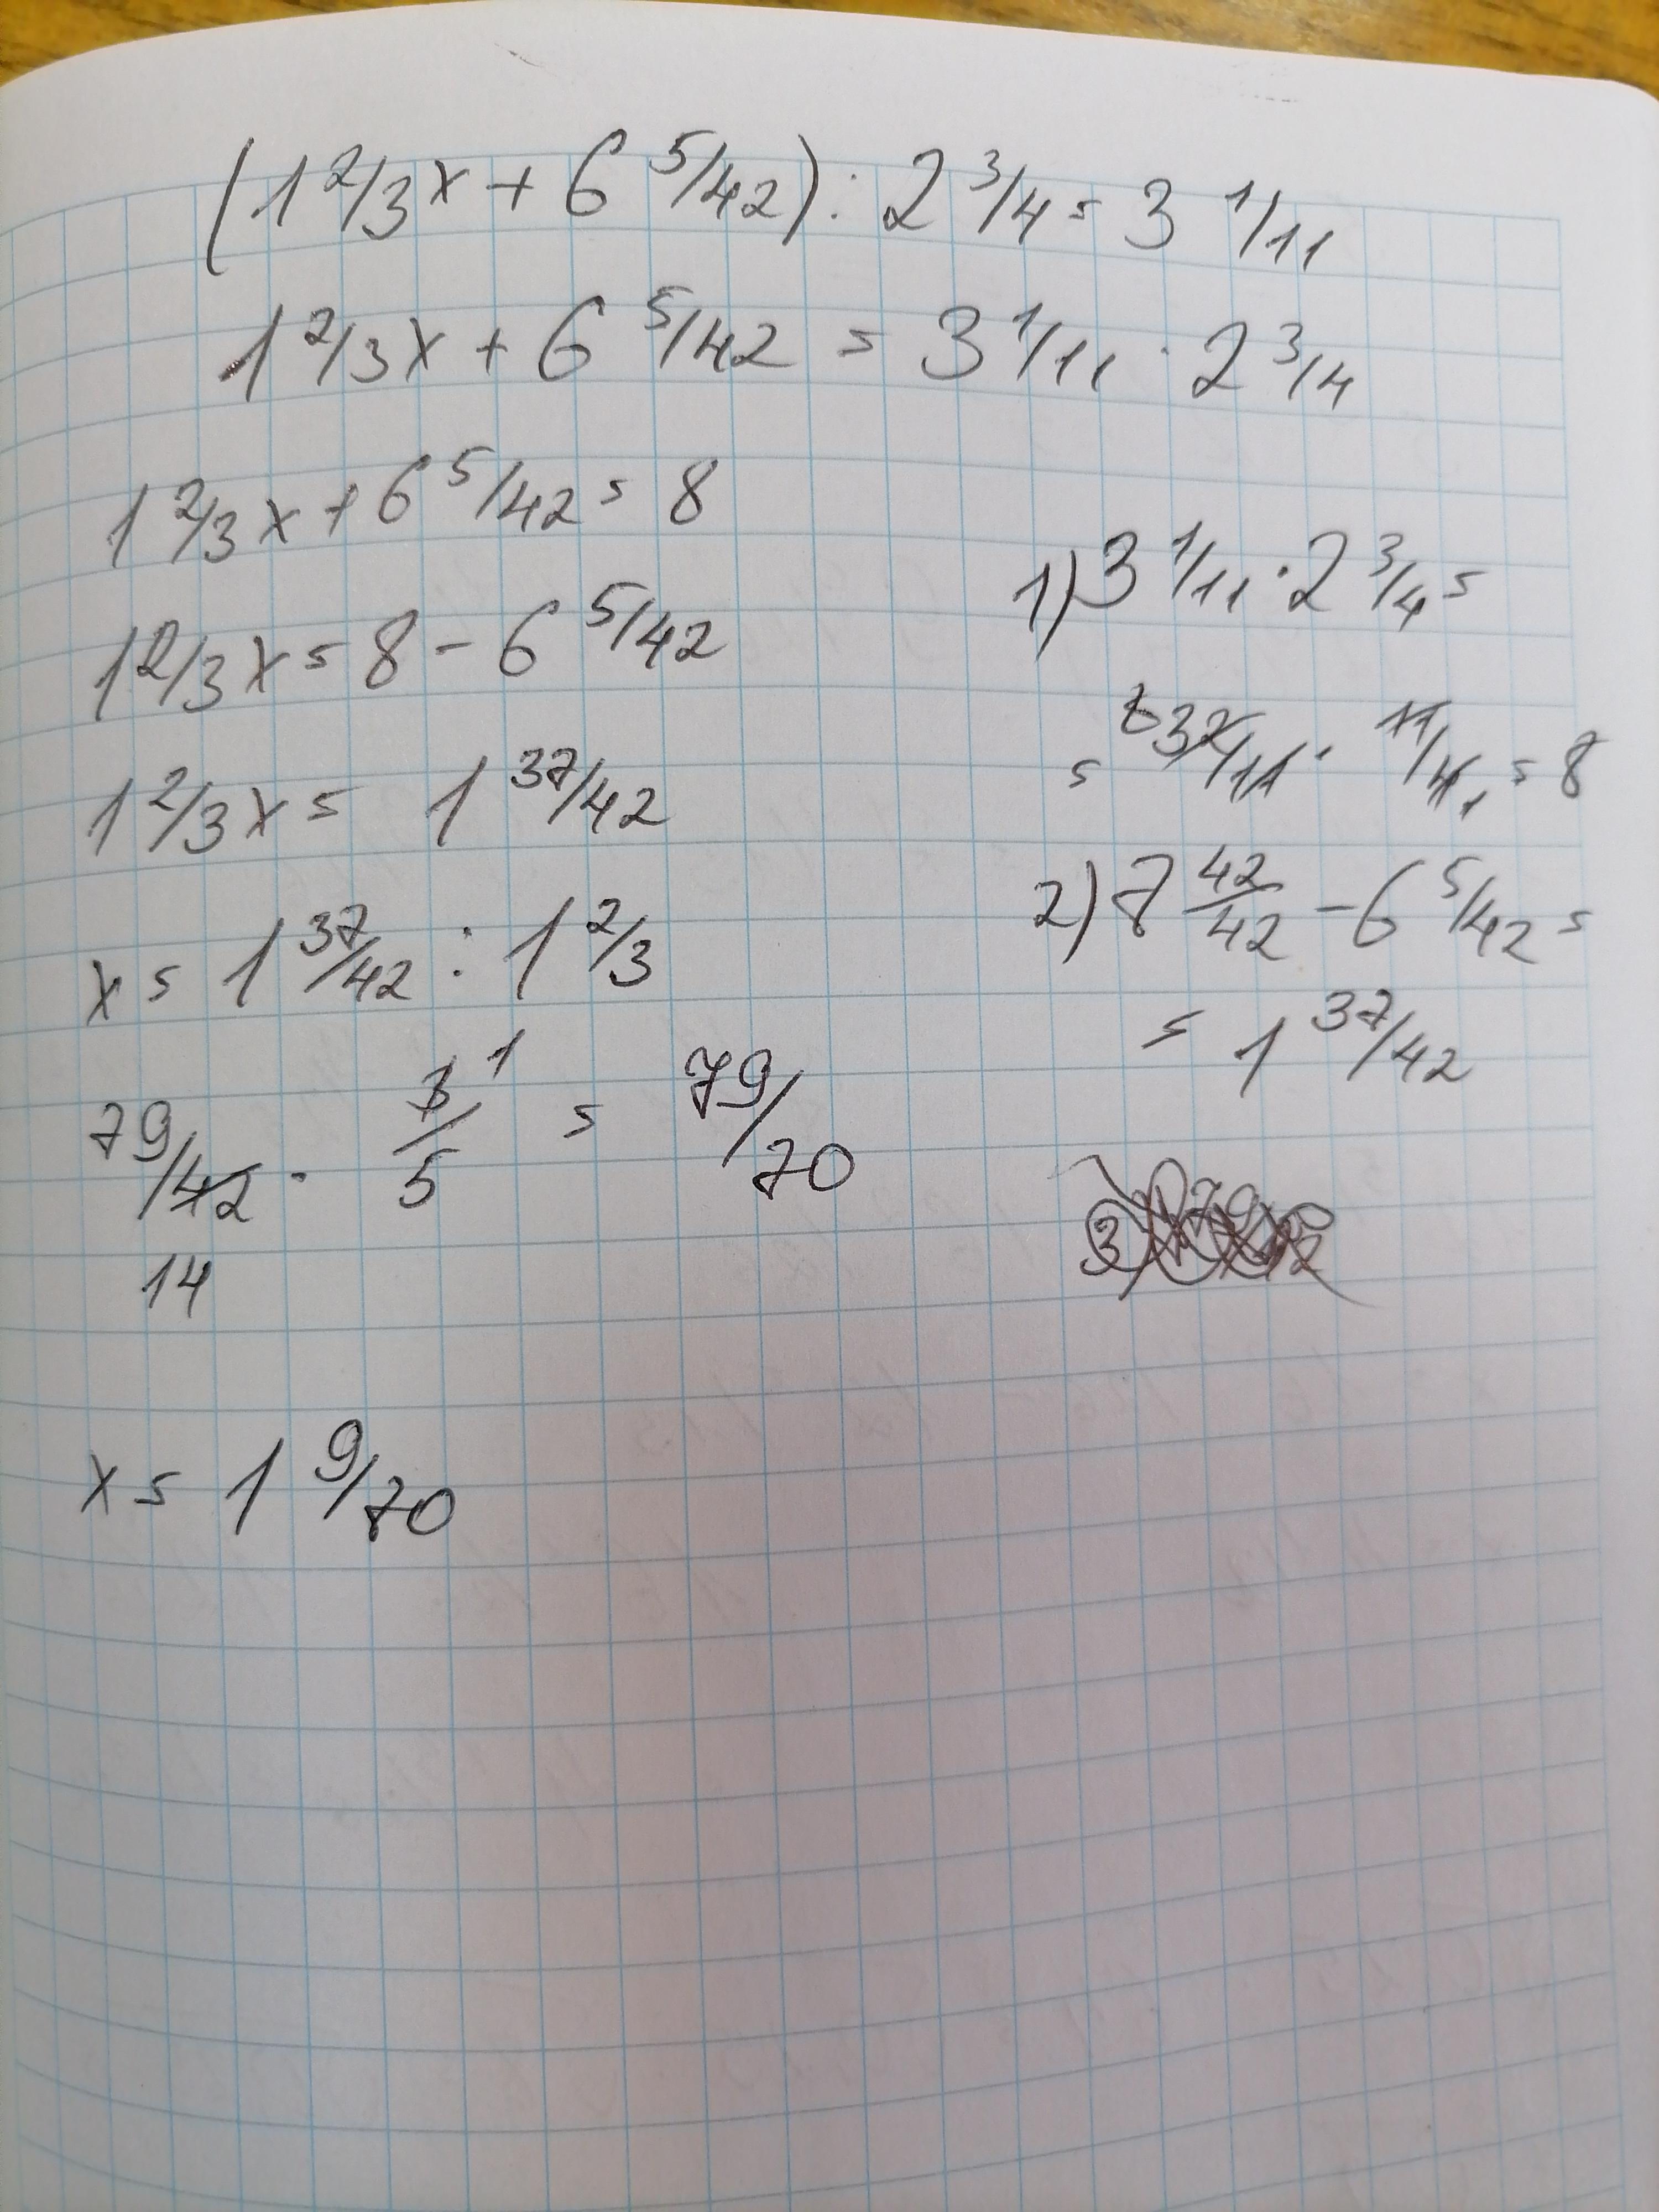 (1 2/3 x + 6 5/42) : 2 3/4 = 3 1/11
1 2/3 x + 6 5/42 = 3 1/11 · 2 3/4
1 2/3 x + 6 5/42 = 8
1 2/3 x = 8 - 6 5/42
1 2/3 x = 1 37/42
x = 1 37/42 : 1 2/3
79/42 · 3/5 1 = 79/70
14
x = 1 9/70
1) 3 1/11 · 2 3/4 =
= 8 34/11 · 11/4 1 = 8
2) 7 42/42 - 6 5/42 =
= 1 37/42
3)